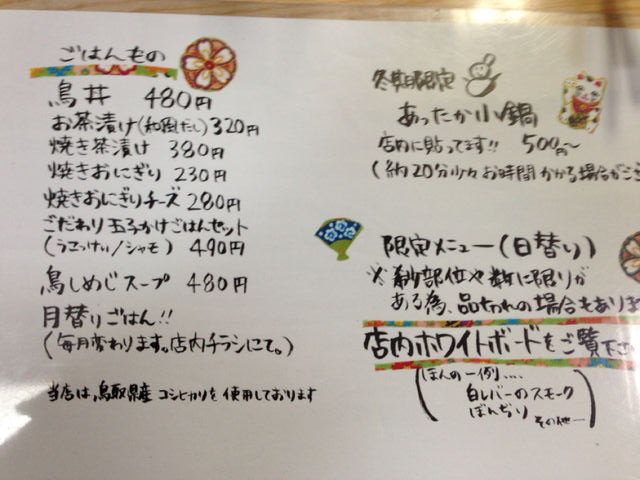 ごはんもの
鳥丼 480円
お茶漬け(和風だし) 320円
焼き茶漬け 380円
焼きおにぎり 230円
焼きおにぎりチーズ 280円
こだわり玉子かけごはんセット
(うこっけい/シャモ) 490円
鳥しめじスープ 480円
月替りごはん!!
(毎月変わります。店内チラシにて。)
当店は、鳥取県産 コシヒカリを使用しております
冬期限定
あったか小鍋
店内に貼ってます!! 500円~
(約20分少々お時間かかる場合がご
限定メニュー(日替り)
※希少部位や数に限りが
ある為、品切れの場合もありま
店内ホワイトボードをご覧下さ
ほんの一例....
白レバーのスモーク
ぼんぢり
その他—